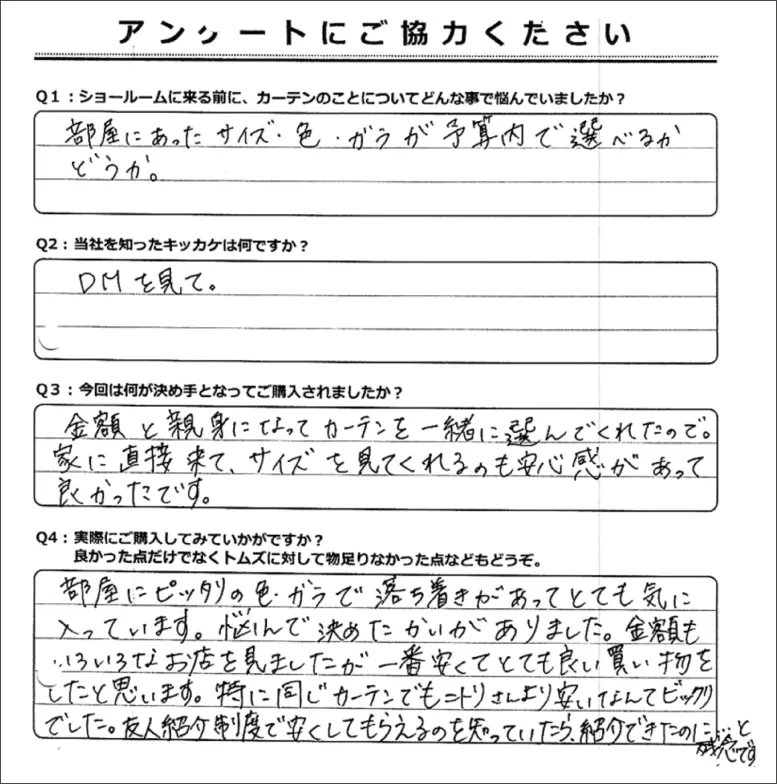 アンケートにご協力ください
Q1：ショールームに来る前に、カーテンのことについてどんな事で悩んでいましたか？
部屋にあったサイズ・色・ガラが予算内で選べるか
どうか。
Q2：当社を知ったキッカケは何ですか？
DMを見て。
Q3：今回は何が決め手となってご購入されましたか？
金額と親身になってカーテンを一緒に選んでくれたので。
家に直接来て、サイズを見てくれるのも安心感があって
良かったです。
Q4：実際にご購入してみていかがですか？
良かった点だけでなくトムズに対して物足りなかった点などもどうぞ。
部屋にピッタリの色・ガラで落ち着きがあってとても気に
入っています。悩んで決めたかいがありました。金額も
いろいろなお店を見ましたが一番安くてとても良い買い物を
したと思います。特に同じカーテンでもニトリさんより安いなんてビックリ
でした。友人紹介制度で安くしてもらえるのを知っていたら、紹介できたのに…と
残念です